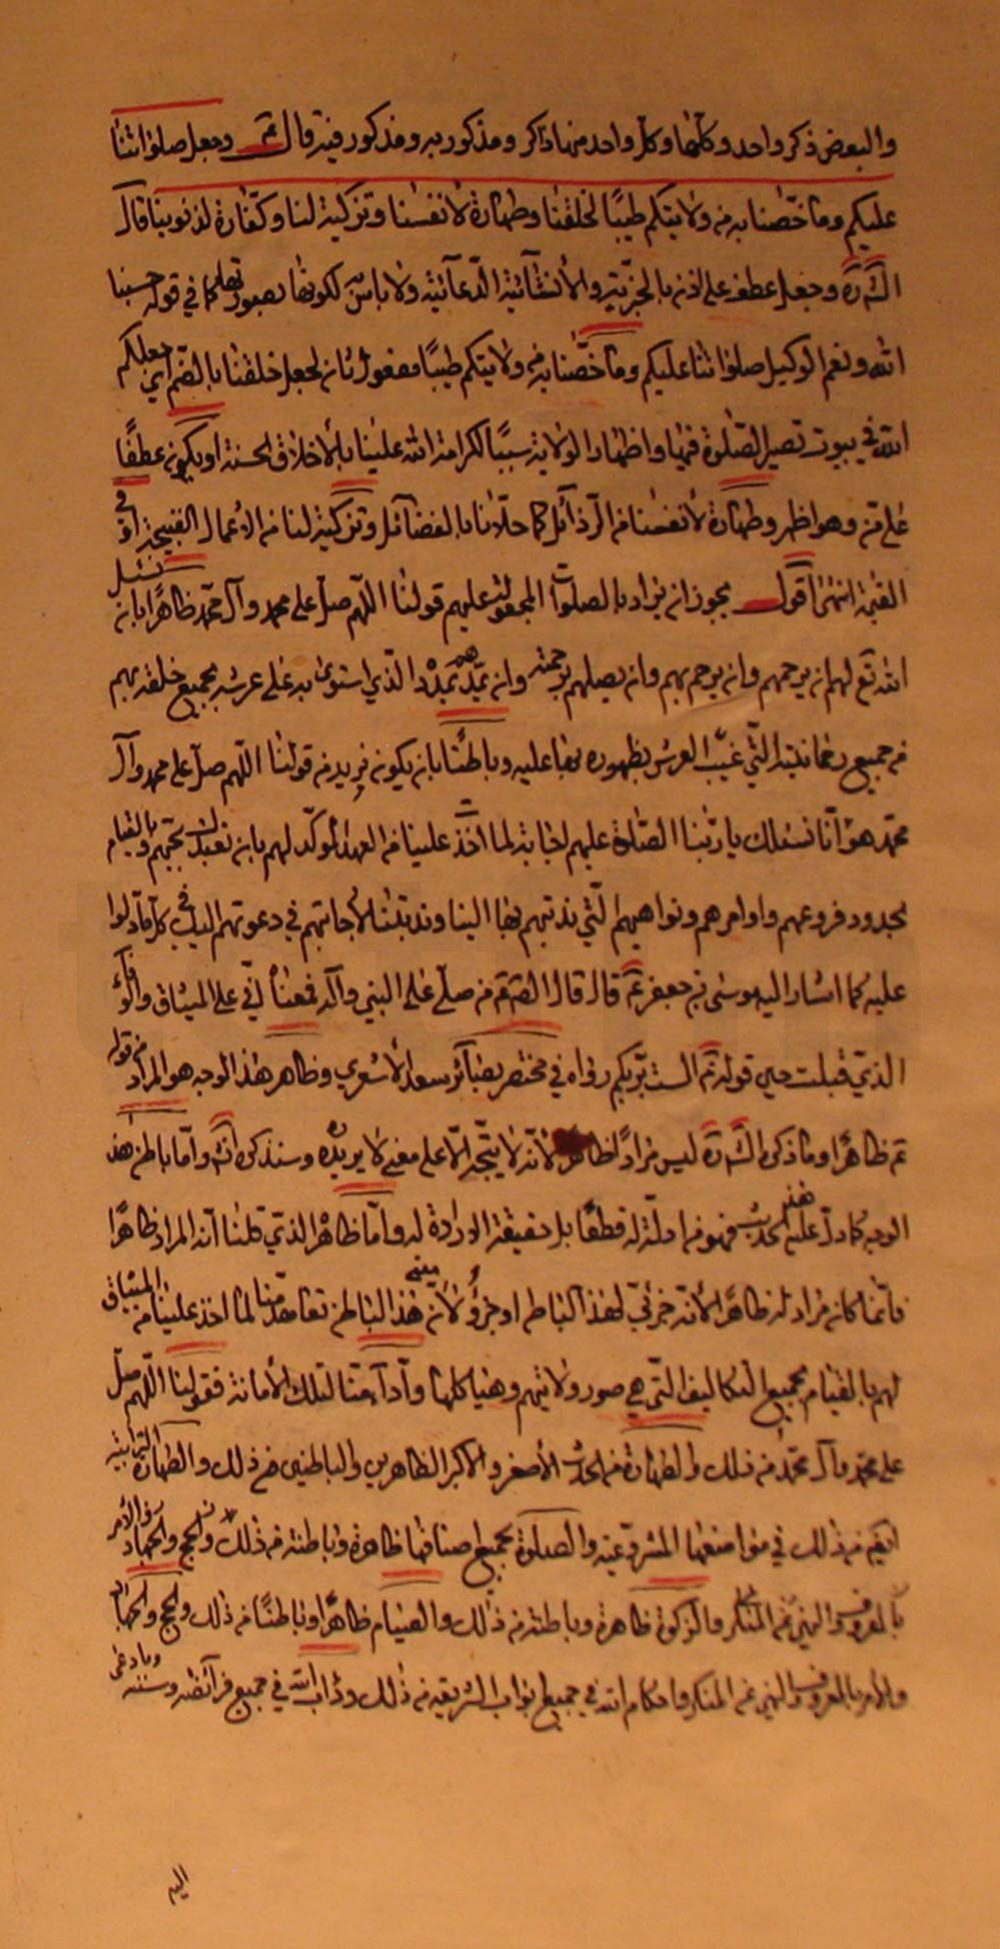 والبعوض ذكر واحد وكلها وكل واحد منها ذاكر ومذكور به ومذكور فيه قال ع وجعل صلواتنا
عليكم وما خصّنا به من ولايتكم طيبًا لخلقنا وطهارة لأنفسنا وتزكية لنا وكفّارة لذنوبنا قال
الش ره وجعل عطف على اذن بالخبرية والأنشائية الدعائية ولا باس لكونها في قوله حسبنا
الله ونعم الوكيل صلواتنا عليكم وما خصّنا به من ولايتكم طيبًا مفعول ثان لجعل لخلقنا بالضم اي جعلكم
الله في بيوت تصير الصلوة فيها واظهار الولاية سببًا لكرامة الله علينا بالأخلاق الحسنة او يكون عطفًا
على من وهو اظهر وطهارة لأنفسنا من الرذائل كما حلّانا بالفضائل وتزكية لنا من الاعمال القبيحة او في
القيمة انتهى اقول يجوز ان يراد بالصلوات المجعولة عليهم قولنا اللهم صل على محمد وآل محمد ظاهرًا بان نسئل
الله تع لهم ان يرحمهم وان يرحم بهم وان يصلهم برحمته وان يمدهم بمدد الذي استوى به على عرشه بجميع خلقه بهم
من جميع رحمانيته التي غيّب العرش بظهوره بها عليه وباطنًا بان يكون نريد من قولنا اللهم صل على محمد وآل
محمد هو انّا نسئلك يا ربنا الصلوة عليهم اجابة لما اخذت علينا من العهد المؤكد لهم بان نعبدك بحبّهم وبالقيام
بحدود فروعهم واوامرهم ونواهيهم التي ندبتهم بها الينا وندبتنا لأجابتهم في دعوتهم اليك في كل ما دلوا
عليه كما اشار اليه موسى بن جعفر ع قال قال الص ع من صلّى على النبي وآله فمعناه انّي على الميثاق والوفاء
الذي قبلت حين قوله تع الست بربكم رواه في مختصر بصائر سعد الأشعري وظاهر هذا الوجه هو المراد من قوله
ع ظاهرًا وما ذكره الش ره ليس مرادًا لأنه لا يتّجه الّا على معنى لا يريده وسنذكره انش وامّا باطن هذا
الوجه كما دل عليه هذا الحديث فهو من ادلّته قطعًا بل حقيقة الارادة له وامّا ظاهر الذي قلنا انه المراد ظاهرًا
فانّما كان مراد له ظاهرًا لأنه جزئيّ لهذا الباطن او جزؤ منه لأنّ هذا الباطن تعاهد منّا لما اخذ علينا من الميثاق
لهم بالقيام بجميع التكاليف التي هي صور ولايتهم وهياكلها وأداء منّا لتلك الأمانة فقولنا اللهم صل
على محمد وآل محمد من ذلك والطهارة من الحدث الأصغر والاكبر الظاهرين والباطنين من ذلك والطهارة الترابية
في مواضعها المشروعة والصلوة بجميع اصنافها ظاهرة وباطنة من ذلك والحج والجهاد والأمر
بالمعروف والنهي عن المنكر والزكوة ظاهرة وباطنة من ذلك والصيام ظاهرًا وباطنًا من ذلك والحج والجهاد
والأمر بالمعروف والنهي عن المنكر واحكام الله في جميع ابواب الشريعة من ذلك وآداب الله في جميع فرائضه وسننه وما دعى
اليه